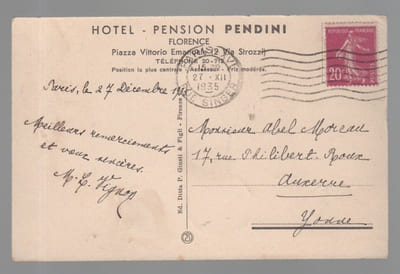 HOTEL - PENSION PENDINI
FLORENCE
Piazza Vittorio Emanuele, 2 (Via Strozzi)
TÉLÉPHONE 20-712
Position la plus centrale - Ascenseur - Prix modérés.
27 · XII
1935
SINGER
20
Paris, le 27 Décembre
Meilleurs remerciements
et vœux sincères.
Ed. Ditta P. Giusti & Figli - Firenze
Monsieur Abel Moreau
17, rue Philibert-Roux
Auxerre
Yonne
21